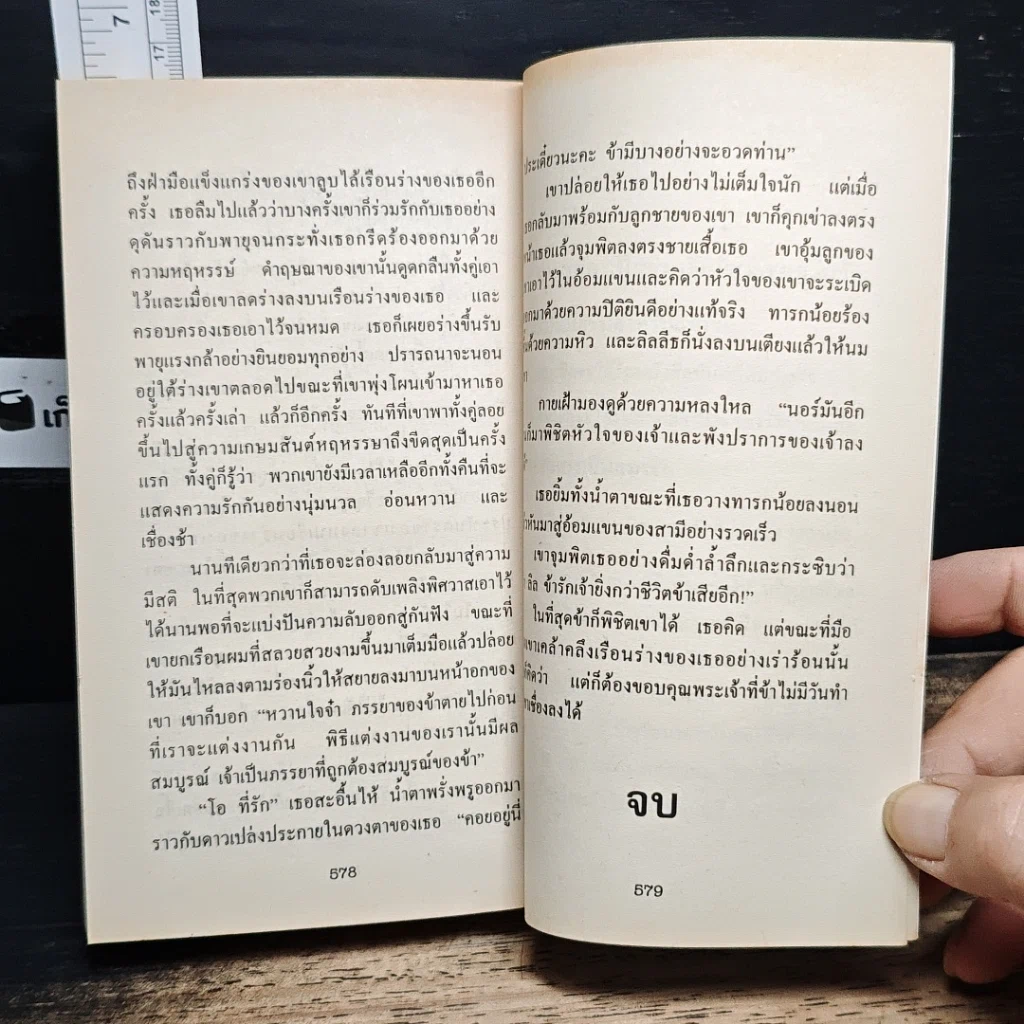 7
18
17
เก็
ถึงฝ่ามือแข็งแกร่งของเขาลูบไล้เรือนร่างของเธออีก
ครั้ง เธอลืมไปแล้วว่าบางครั้งเขาก็ร่วมรักกับเธออย่าง
ดุดันราวกับพายุจนกระทั่งเธอกรีดร้องออกมาด้วย
ความหฤหรรษ์ ดำฤษณาของเขานั้นดูดกลืนทั้งคู่เอา
ไว้และเมื่อเขาลดร่างลงบนเรือนร่างของเธอ และ
ครอบครองเธอเอาไว้จนหมด เธอก็เผยอร่างขึ้นรับ
พายุแรงกล้าอย่างยินยอมทุกอย่าง ปรารถนาจะนอน
อยู่ใต้ร่างเขาตลอดไปขณะที่เขาพุ่งโผนเข้ามาหาเธอ
ครั้งแล้วครั้งเล่า แล้วก็อีกครั้ง ทันทีที่เขาพาทั้งคู่ลอย
ขึ้นไปสู่ความเกษมสันต์หฤหรรษาถึงขีดสุดเป็นครั้ง
แรก ทั้งคู่ก็รู้ว่า พวกเขายังมีเวลาเหลืออีกทั้งคืนที่จะ
แสดงความรักกันอย่างนุ่มนวล อ่อนหวาน และ
เชื่องช้า
นานทีเดียวกว่าที่เธอจะล่องลอยกลับมาสู่ความ
มีสติ ในที่สุดพวกเขาก็สามารถดับเพลิงพิศวาสเอาไว้
ได้นานพอที่จะแบ่งปันความลับออกสู่กันฟัง ขณะที่
เขายกเรือนผมที่สลวยสวยงามขึ้นมาเต็มมือแล้วปล่อย
ให้มันไหลลงตามร่องนิ้วให้สยายลงมาบนหน้าอกของ
เขา เขาก็บอก “หวานใจจ๋า ภรรยาของข้าตายไปก่อน
ที่เราจะแต่งงานกัน พิธีแต่งงานของเรานั้นมีผล
สมบูรณ์ เจ้าเป็นภรรยาที่ถูกต้องสมบูรณ์ของข้า”
“โอ ที่รัก” เธอสะอื้นไห้ น้ำตาพรั่งพรูออกมา
ราวกับดาวเปล่งประกายในดวงตาของเธอ “คอยอยู่นี่
578
ประเดี๋ยวนะคะ ข้ามีบางอย่างจะอวดท่าน”
เขาปล่อยให้เธอไปอย่างไม่เต็มใจนัก แต่เมื่อ
กลับมาพร้อมกับลูกชายของเขา เขาก็คุกเข่าลงตรง
หน้าเธอแล้วจุมพิตลงตรงชายเสื้อเธอ เขาอุ้มลูกของ
เอาไว้ในอ้อมแขนและคิดว่าหัวใจของเขาจะระเบิด
ออกมาด้วยความปิติยินดีอย่างแท้จริง ทารกน้อยร้อง
ด้วยความหิว และลิลลีธก็นั่งลงบนเตียงแล้วให้นม
กายเฝ้ามองดูด้วยความหลงใหล “นอร์มันอีก
ก็มาพิชิตหัวใจของเจ้าและพังปราการของเจ้าลง
เธอยิ้มทั้งน้ำตาขณะที่เธอวางทารกน้อยลงนอน
หันมาสู่อ้อมแขนของสามีอย่างรวดเร็ว
เขาจุมพิตเธออย่างดื่มด่ำล้ำลึกและกระซิบว่า
ลิล ข้ารักเจ้ายิ่งกว่าชีวิตข้าเสียอีก!”
ในที่สุดข้าก็พิชิตเขาได้ เธอคิด แต่ขณะที่มือ
เขาเคล้าคลึงเรือนร่างของเธออย่างเร่าร้อนนั้น
คิดว่า แต่ก็ต้องขอบคุณพระเจ้าที่ข้าไม่มีวันทำ
เชื่องลงได้
จบ
579